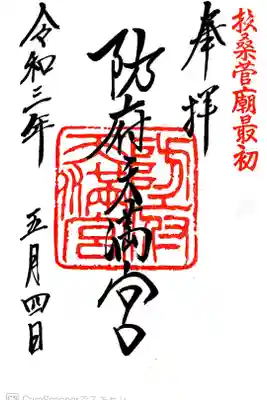 扶桑菅廟最初
奉拝
防府天満宮
防府天満宮
令和三年
五月四日